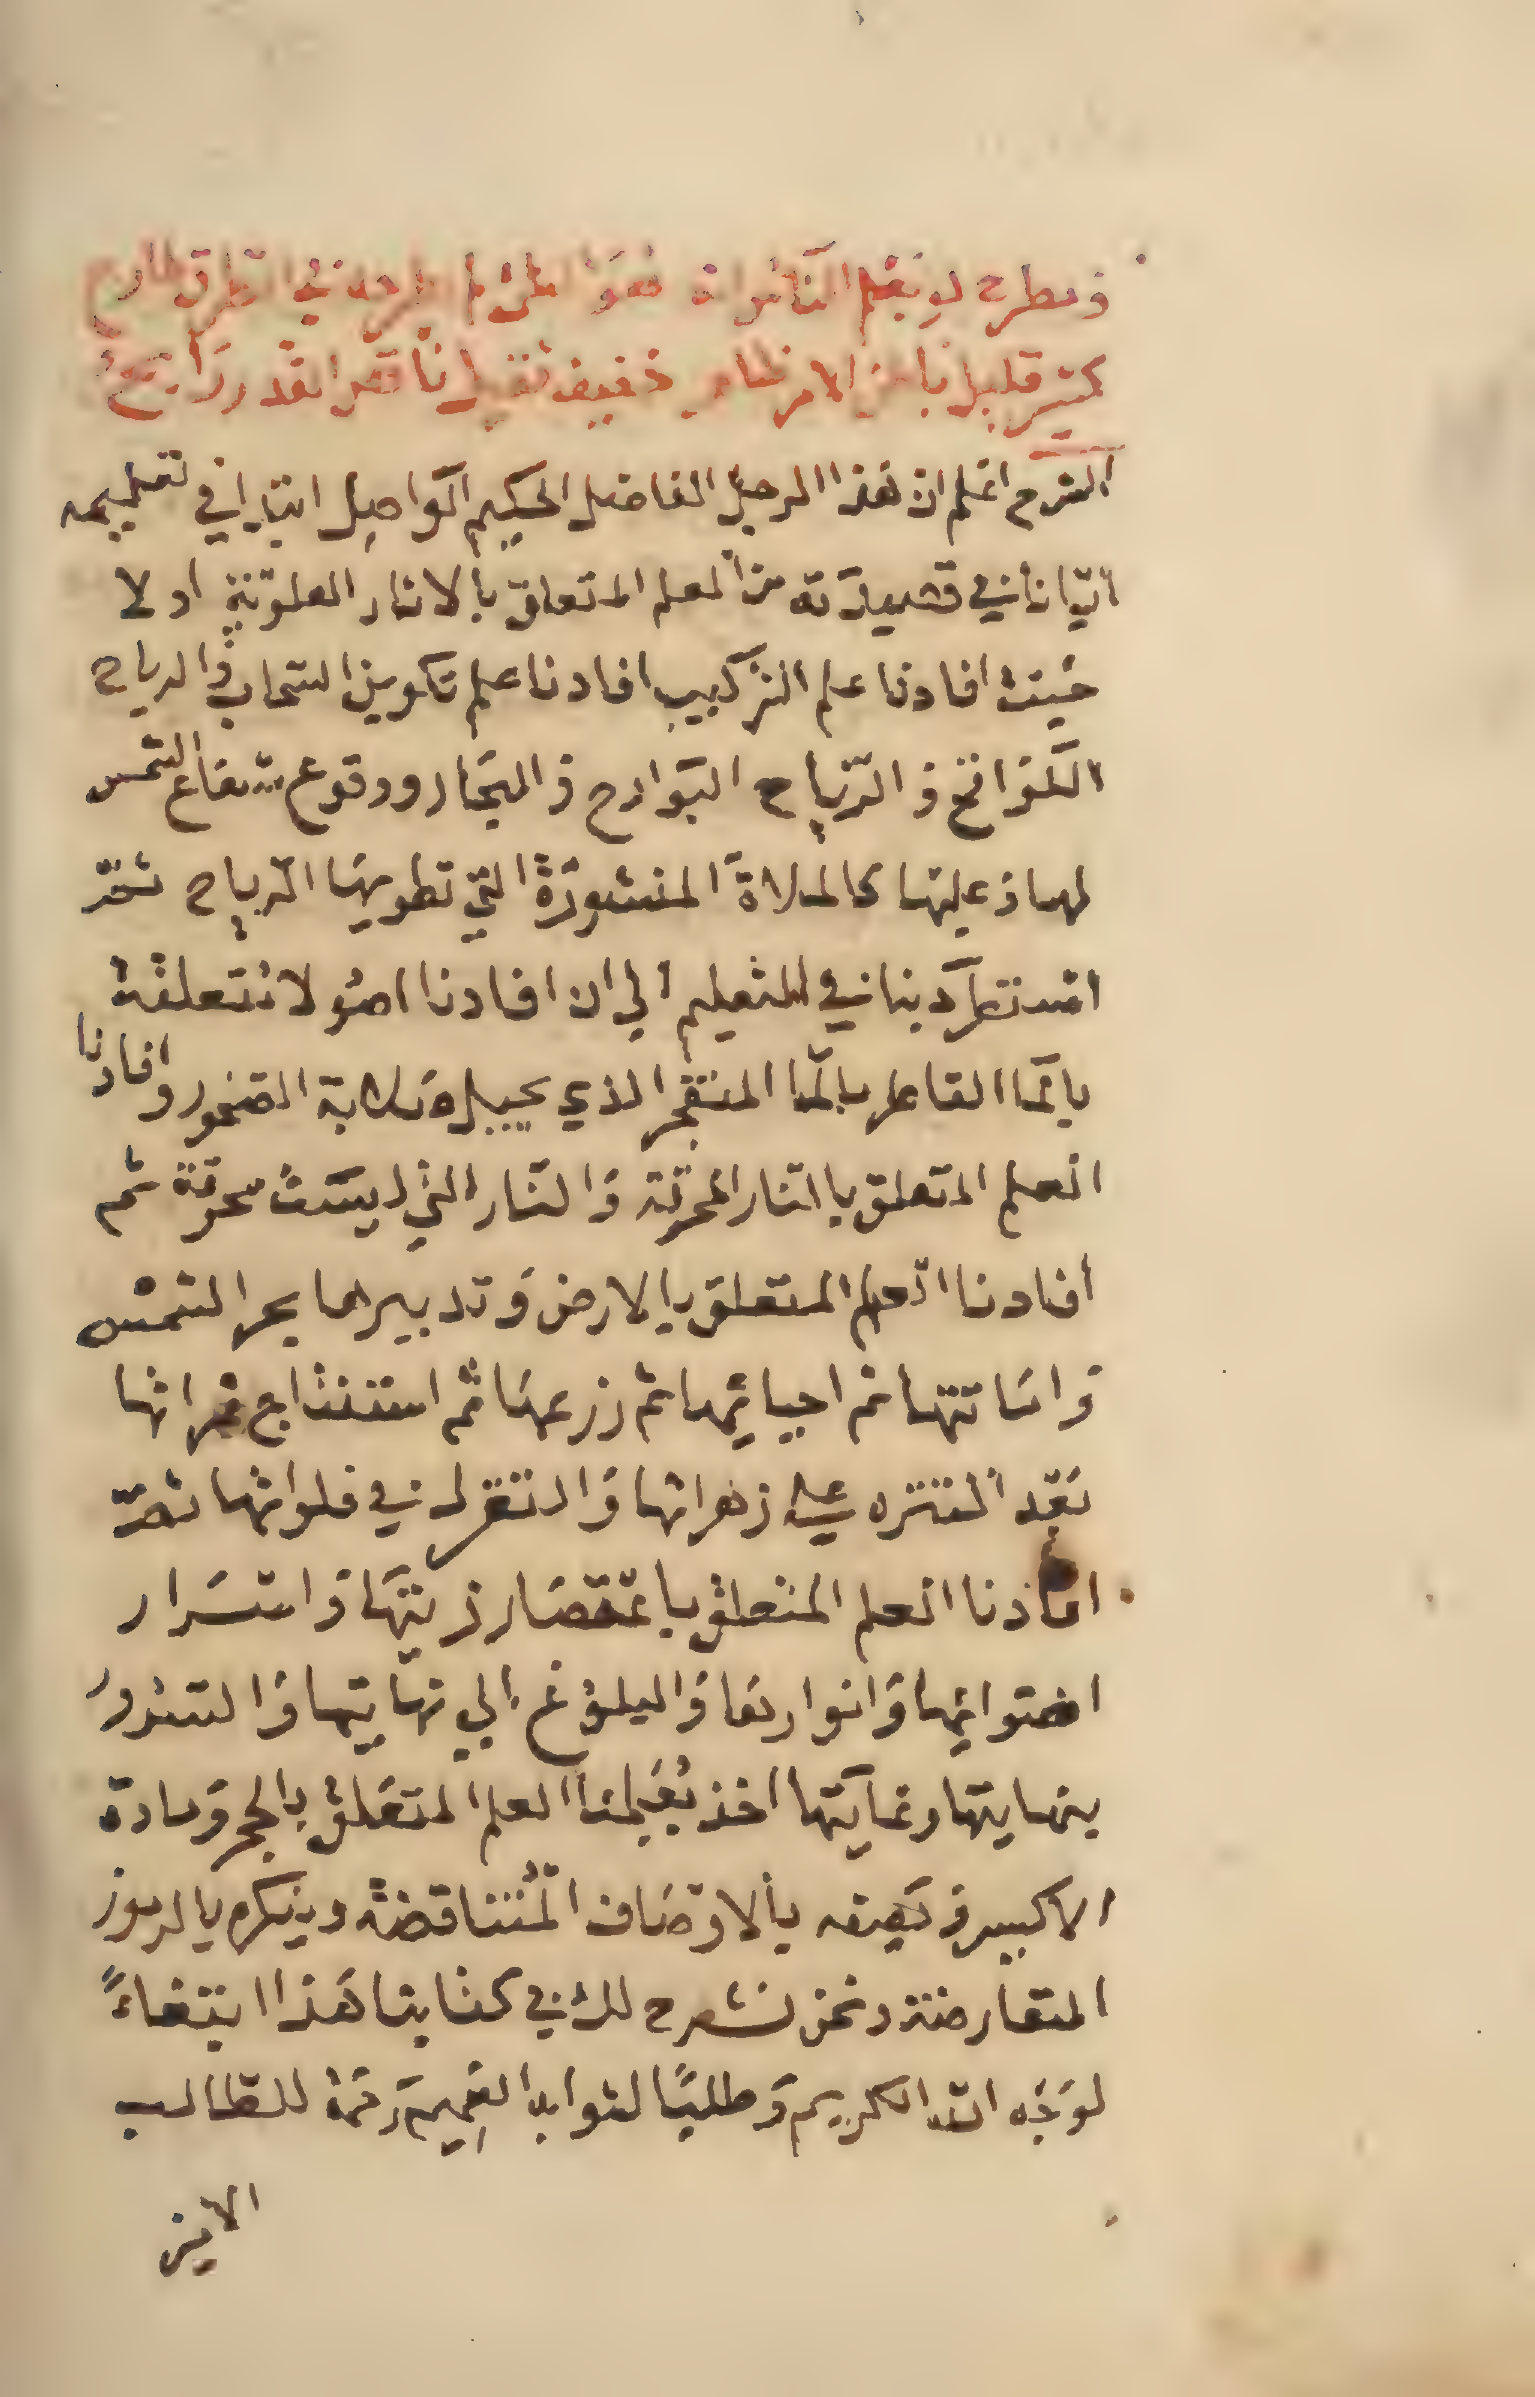 ومطرح لو يعلم الناس انه هو المطرح في الطرق طارح
كثير قليل باطن الامر ظاهر خفيف ثقيل ناقص القدر راجح
الشرح اعلم ان هذا الرجل الفاضل الحكيم الواصل ابتدا في تعليمه
ايانا في قصيدته من العلم المتعلق بالاثار العلوية اولا
حيث افادنا علم التركيب افادنا علم تكوين السحاب والرياح
اللواقح والرياح البوارح والبحار ووقوع شعاع الشمس
لهاو عليها كالملاة المنشورة التي تطويها الرياح ثم
استطرد بنا في التعليم الي ان افادنا اصولا متعلقة
بالما القاطر بالما المنفجر الذي يحيل صلابة الصخور وافادنا
العلم المتعلق بالنار المحرقة والنار التي ليست محرقة ثم
افادنا العلم المتعلق بالارض وتدبيرها بحر الشمس
واماتتها ثم احيائها ثم زرعها ثم استنتاج ثمراتها
بعد التنزه علي زهراتها والتغزل في فلواتها ثم
افادنا العلم المتعلق باعتصار زيتها واستسرار
اضوائها وانوارها والبلوغ الي نهايتها والسرور
بنهايتها وغايتها اخذ يعلمنا العلم المتعلق بالحجر ومادة
الاكسير وصفه بالاوصاف المتناقضة ويذكره بالرموز
المتعارضة ونحن نشرح لك في كتابنا هذا ابتغاءً
لوجه الله الكريم وطلبًا لثوابه العميم رحمة للطالب